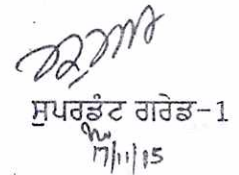 ਸੁਪਰਡੰਟ ਗਰੇਡ-1
17/11/15